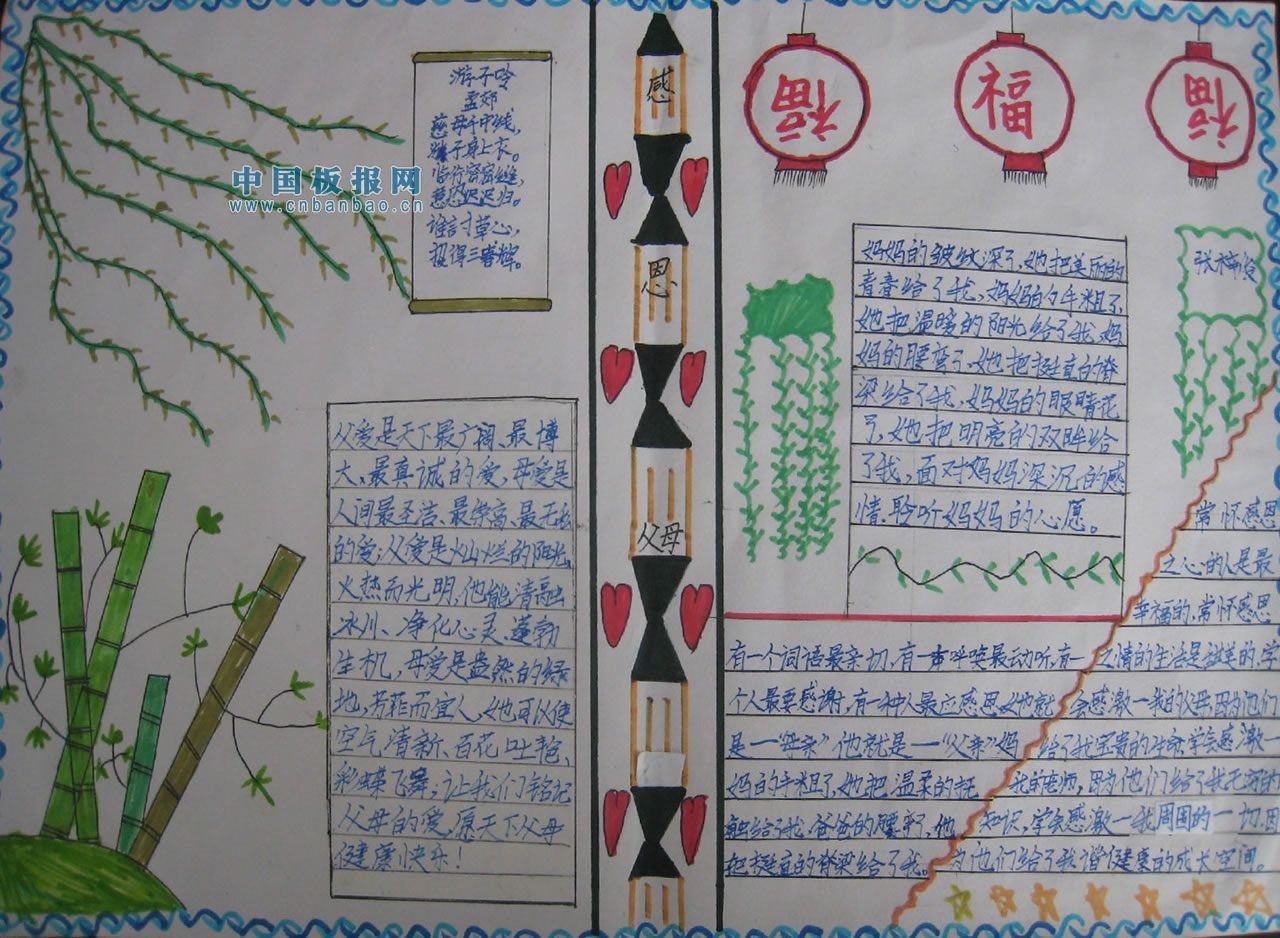 游子吟
孟郊
慈母手中线,
游子身上衣。
临行密密缝,
意恐迟迟归。
谁言寸草心,
报得三春辉。
中国板报网
www.cnbanbao.cn
父爱是天下最广阔、最博
大、最真诚的爱,母爱是
人间最圣洁、最崇高、最无私
的爱;父爱是火山烂的阳光,
火热而光明,他能清融
冰川、净化心灵、蓬勃
生机,母爱是盎然的绿
地,芳菲而宜人,她可以使
空气清新、百花吐艳、
彩蝶飞舞;让我们铭记
父母的爱,愿天下父母
健康快乐!
感
恩
父母
福
福
福
妈妈的皱纹深了,她把美丽的
青春给了我,妈妈的手粗了,
她把温暖的阳光给了我,妈
妈的腰弯了,她把挺直的脊
梁给了我,妈妈的眼睛花
了,她把明亮的双眸给
了我,面对妈妈深沉的感
情,聆听妈妈的心愿。
有一个词语最亲切,有一声呼唤最动听,有一
个人最要感谢,有一种人最应感恩,她就
是一"母亲"他就是一"父亲"妈
妈的手粗了,她把温柔的抚
触给了我,爸爸的腰弯了,他
把挺直的脊梁给了我。
常怀感恩
之心的人是最
幸福的,常怀感恩
之情的生活是甜美的,学
会感激一我的父母,因为他们
给了我宝贵的生命,学会感激一
我的老师,因为他们给了我无穷的
知识,学会感激一我周围的一切,因
为他们给了我健康的成长空间。